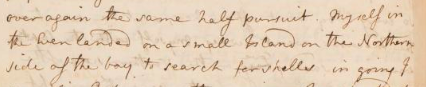 over again the same half pursuit. Myself in
the Even landed on a small Island on the Northern
side of the bay to search for shells in going I